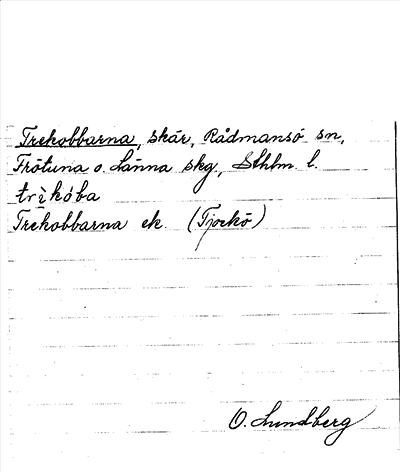 Trekobbarna, skär, Rådmansö sn,
Frötuna o. Länna skg, Sthlm. l.
trìkóba
Trekobbarna ek. (Tjockö)
O. Lundberg